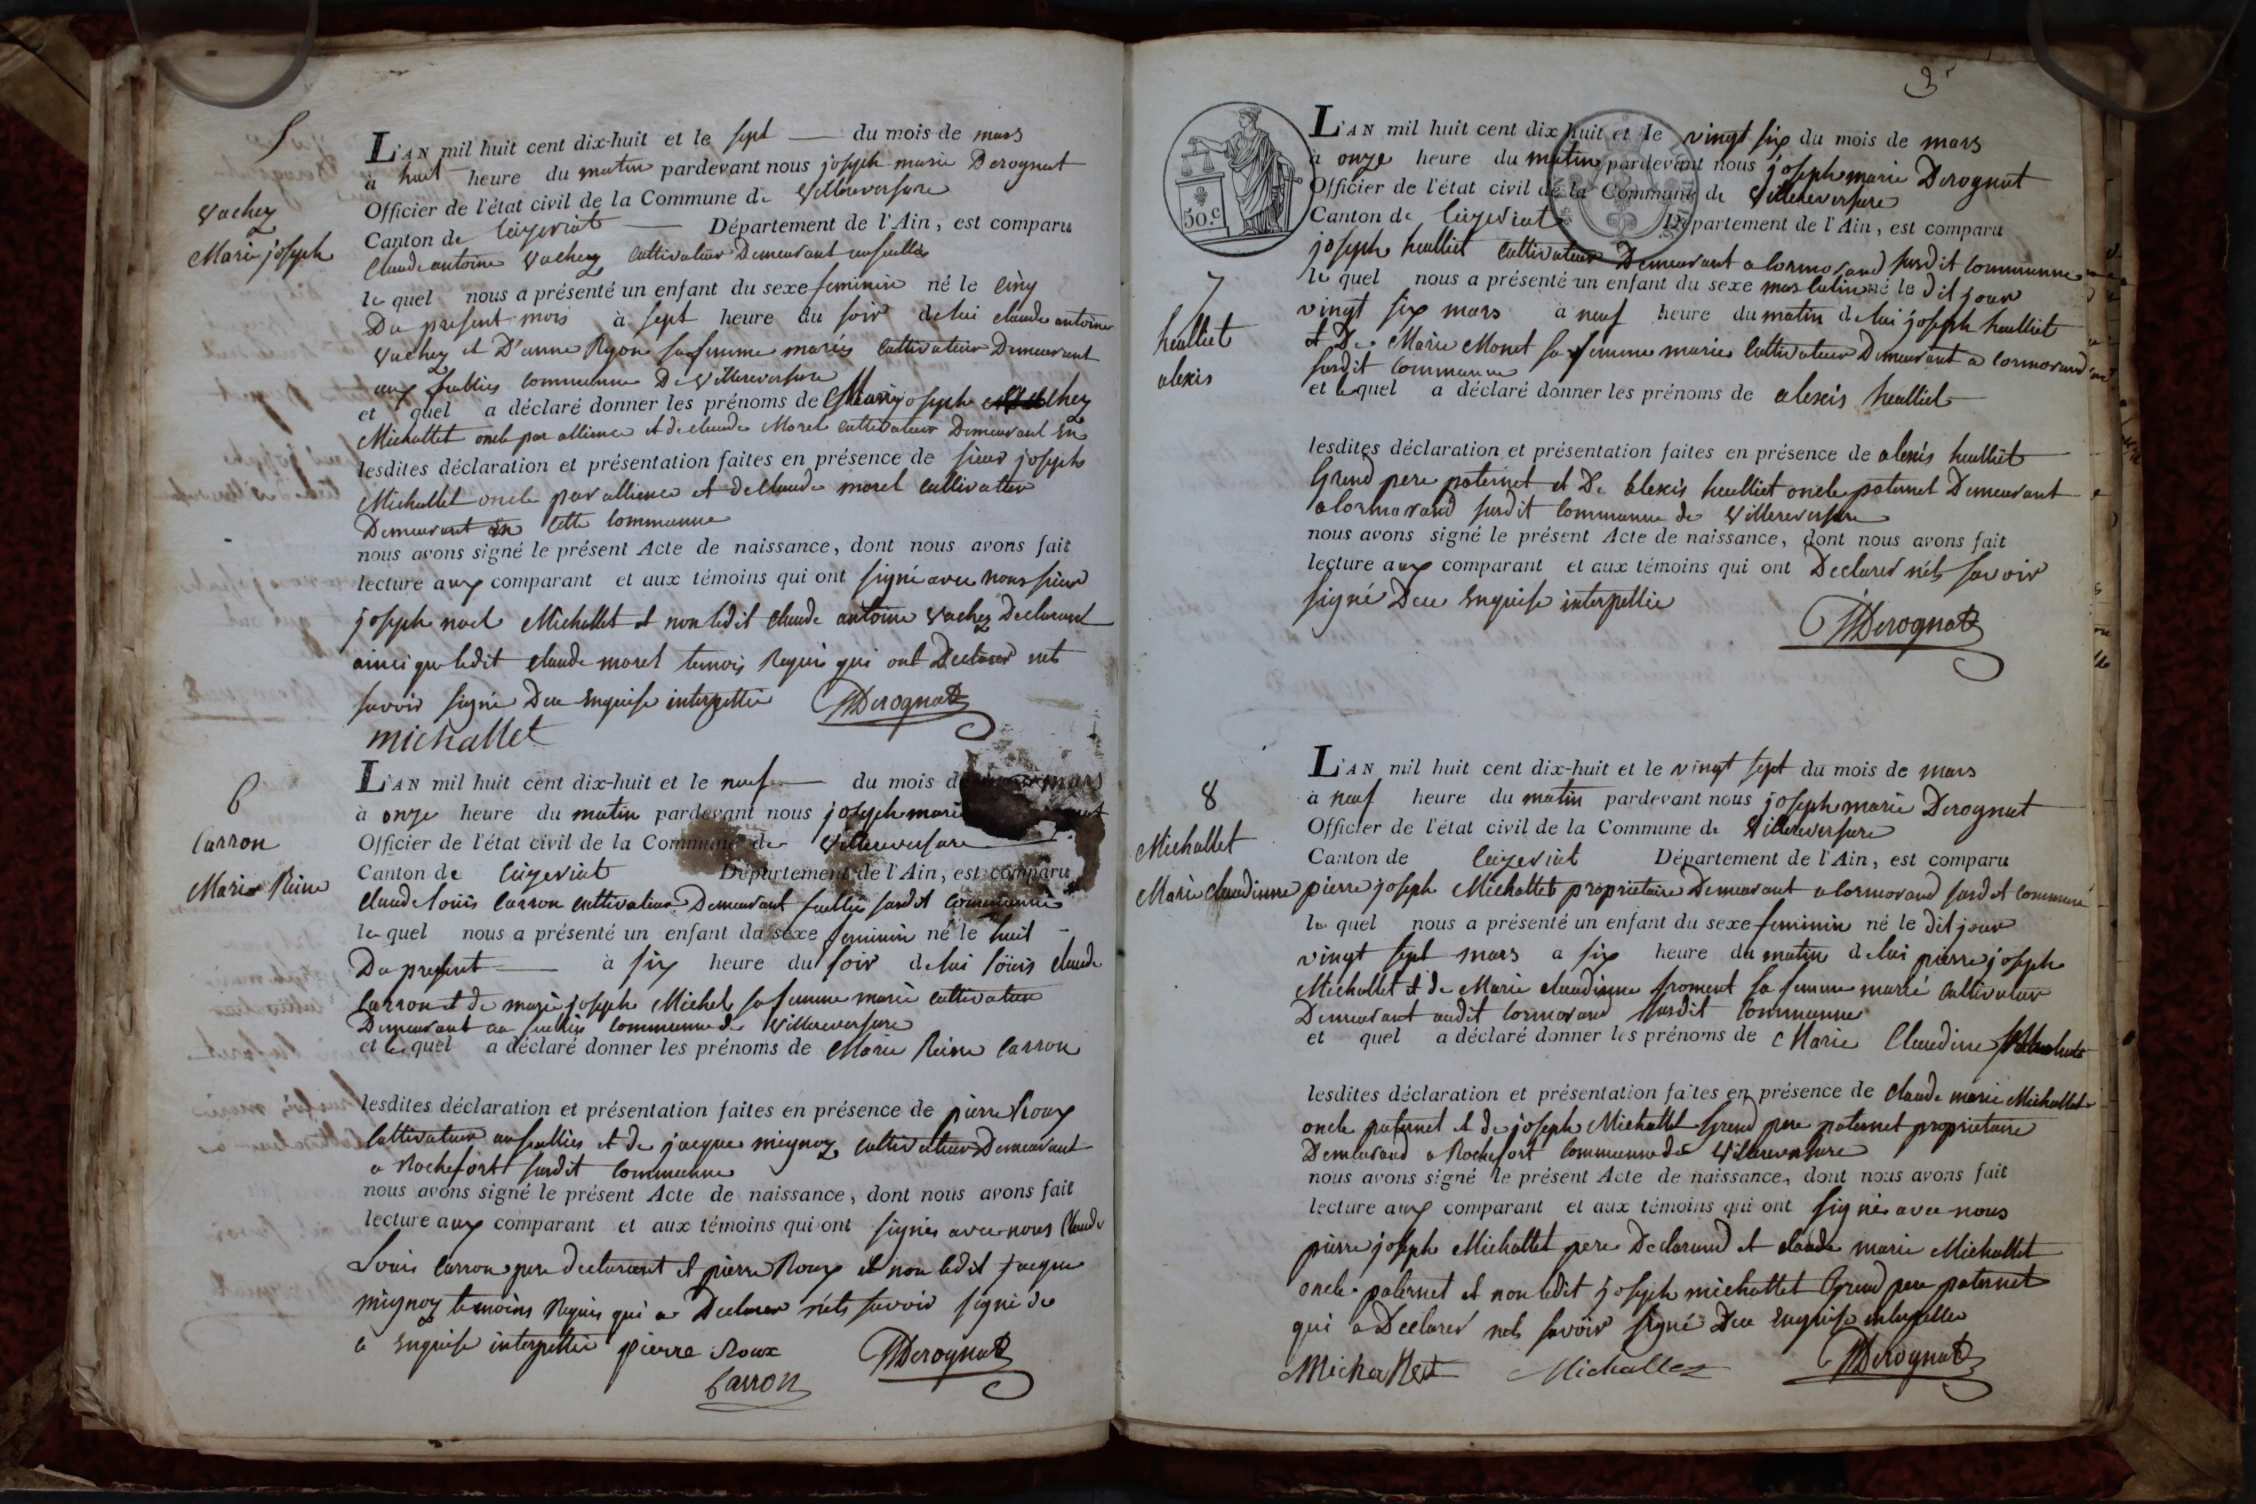 5
Vachez
Marie joseph
L'AN mil huit cent dix-huit et le sept du mois de mars
à huit heure du matin pardevant nous joseph marie Derognat
Officier de l'état civil de la Commune de Villereversure
Canton de Ceyzeriat Département de l'Ain, est comparu
Claude antoine Vachez Cultivateur Demeurant aufeuilles
le quel nous a présenté un enfant du sexe feminin né le cinq
Du present mois à sept heure du soir de lui claude antoine
Vachez et D'anne Ryon sa femme mariés Cultivateur Demeurant
aux feullies commune De Villereversure
et quel a déclaré donner les prénoms de Marie joseph
Michallet oncle par alliance et de claude Morel cultivateur Demeurant En
lesdites déclaration et présentation faites en présence de sieur joseph
Michallet oncle par alliance et de Claude morel cultivateur
Demeurant En cette Commune
nous avons signé le présent Acte de naissance, dont nous avons fait
lecture aux comparant et aux témoins qui ont signé avec nous sieur
joseph noel Michallet et non ledit claude antoine Vachez Declarant
ainci que ledit claude morel temois Requis qui ont Declarer nets
savoir signé Deu Enquise interpellée MDerognat
michallet
6
Carron
Marie Reine
L'AN mil huit cent dix-huit et le neuf du mois de mars
à onze heure du matin pardevant nous joseph marie
Officier de l'état civil de la Commune de Villereversure
Canton de Ceyzeriat Département de l'Ain, est comparu
claude louis Carron cultivateur Demeurant feullie susdit Commune
le quel nous a présenté un enfant du sexe feminin né le huit
Du present à six heure du soir de lui loüis claude
Carron et de marie joseph Michel sa femme marié cultivateur
Demeurant au feullie commune de Villereversure
et le quel a déclaré donner les prénoms de Marie Reine Carron
lesdites déclaration et présentation faites en présence de pierre Roux
Cultivateur aufeullies et de jacque mignoz cultivateur Demeurant
a Rochefort susdit Commune
nous avons signé le présent Acte de naissance, dont nous avons fait
lecture aux comparant et aux témoins qui ont signés avec nous Claude
Louis Carron pere declarant et pierre Roux et non ledit jacque
mignoz temoins Requis qui a Declarer nets savoir signé de
a Enquise interpellée pierre Roux MDerognat
Carron
3
50.c
7
heulliet
alexis
L'AN mil huit cent dix-huit et le vingt six du mois de mars
à onze heure du matin pardevant nous joseph marie Derognat
Officier de l'état civil de la Commune de Villereversure
Canton de Ceyzeriat Département de l'Ain, est comparu
joseph heulliet cultivateur Demeurant a Cormorand susdit Commune
le quel nous a présenté un enfant du sexe masculin né le dit jour
vingt six mars à neuf heure du matin de lui joseph heulliet
et De Marie Monet sa femme mariée Cultivateur Demeurant a cormorand
susdit Commune
et le quel a déclaré donner les prénoms de alexis heulliet
lesdites déclaration et présentation faites en présence de alexis heulliet
Grand pere paternet et De alexis heulliet oncle paternet Demeurant
a Cormorand susdit Commune de Villereversure
nous avons signé le présent Acte de naissance, dont nous avons fait
lecture aux comparant et aux témoins qui ont Declarer nets savoir
signé Deu Enquise interpellée
MDerognat
8
Michallet
Marie claudinne
L'AN mil huit cent dix-huit et le vingt sept du mois de mars
à neuf heure du matin pardevant nous joseph marie Derognat
Officier de l'état civil de la Commune de Villereversure
Canton de Ceyzeriat Département de l'Ain, est comparu
pierre joseph Michallet proprietaire Demeurant a Cormorand susdit commune
le quel nous a présenté un enfant du sexe feminin né le dit jour
vingt sept mars a six heure du matin de lui pierre joseph
Michallet et de Marie claudinne froment sa femme marié cultivateur
Demeurant audit Cormorand susdit Commune
et quel a déclaré donner les prénoms de Marie Claudine
lesdites déclaration et présentation faites en présence de claude marie Michallet
oncle paternet et de joseph Michallet Grend pere paternet proprietaire
Demeurand a Rochefort Commune de Villereversure
nous avons signé le présent Acte de naissance, dont nous avons fait
lecture aux comparant et aux témoins qui ont signés avec nous
pierre joseph Michallet pere Declarand et claude marie Michallet
oncle paternet et non ledit joseph michallet Grend pere paternet
qui a Declarer nets savoir signé Deu Enquise interpellée
Michallet Michallet MDerognat